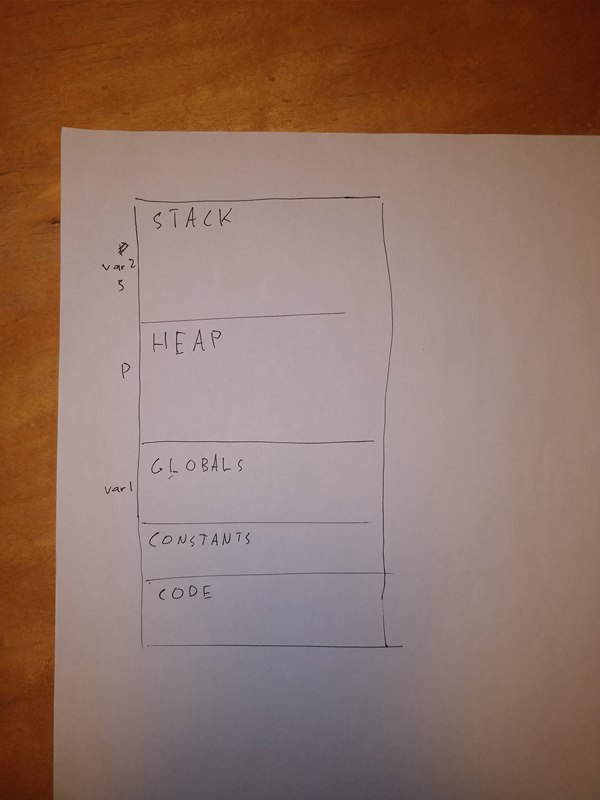 STACK
var2
5
HEAP
P
GLOBALS
var1
CONSTANTS
CODE